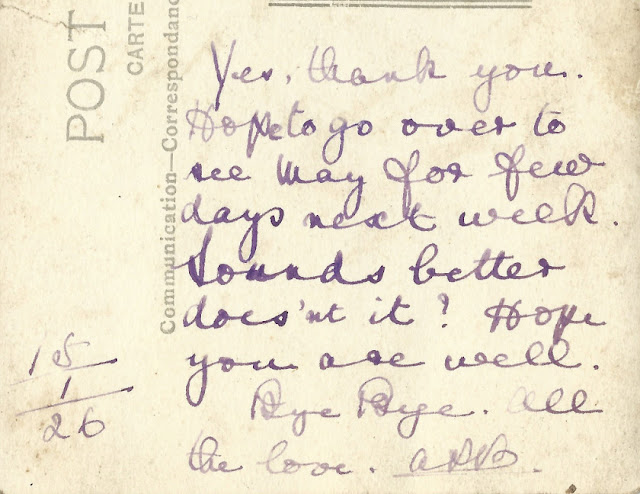 POST
CARTE
Communication—Correspondanc
Yes, thank you.
Hope to go over to
see May for few
days next week.
Sounds better
does'nt it? Hope
you are well.
Bye Bye. All
the love.
15
1
26